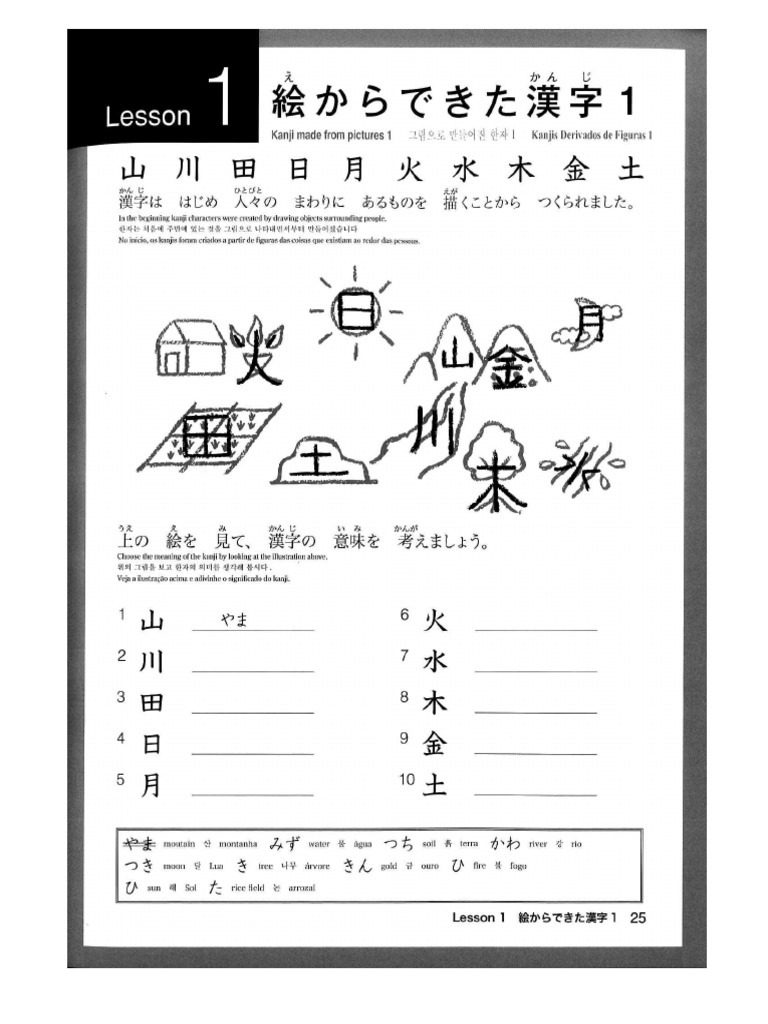 Lesson 1
え かん じ
絵からできた漢字 1
Kanji made from pictures 1 그림으로 만들어진 한자 1 Kanjis Derivados de Figuras 1
山 川 田 日 月 火 水 木 金 土
かん じ ひとびと えが
漢字は はじめ 人々の まわりに あるものを 描くことから つくられました。
In the beginning kanji characters were created by drawing objects surrounding people.
한자는 처음에 주변에 있는 것을 그림으로 나타내면서부터 만들어졌습니다
No início, os kanjis foram criados a partir de figuras das coisas que existiam ao redor das pessoas.
日
月
火
山
金
田
土
川
木
水
うえ え み かん じ い み かんが
上の 絵を 見て、漢字の 意味を 考えましょう。
Choose the meaning of the kanji by looking at the illustration above.
위의 그림을 보고 한자의 의미를 생각해 봅시다.
Veja a ilustração acima e adivinhe o significado do kanji.
1 山 やま
2 川
3 田
4 日
5 月
6 火
7 水
8 木
9 金
10 土
やま moutain 산 montanha みず water 물 água つち soil 흙 terra かわ river 강 rio
つき moon 달 Lua き tree 나무 árvore きん gold 금 ouro ひ fire 불 fogo
ひ sun 해 Sol た rice field 논 arrozal
Lesson 1 絵からできた漢字 1 25